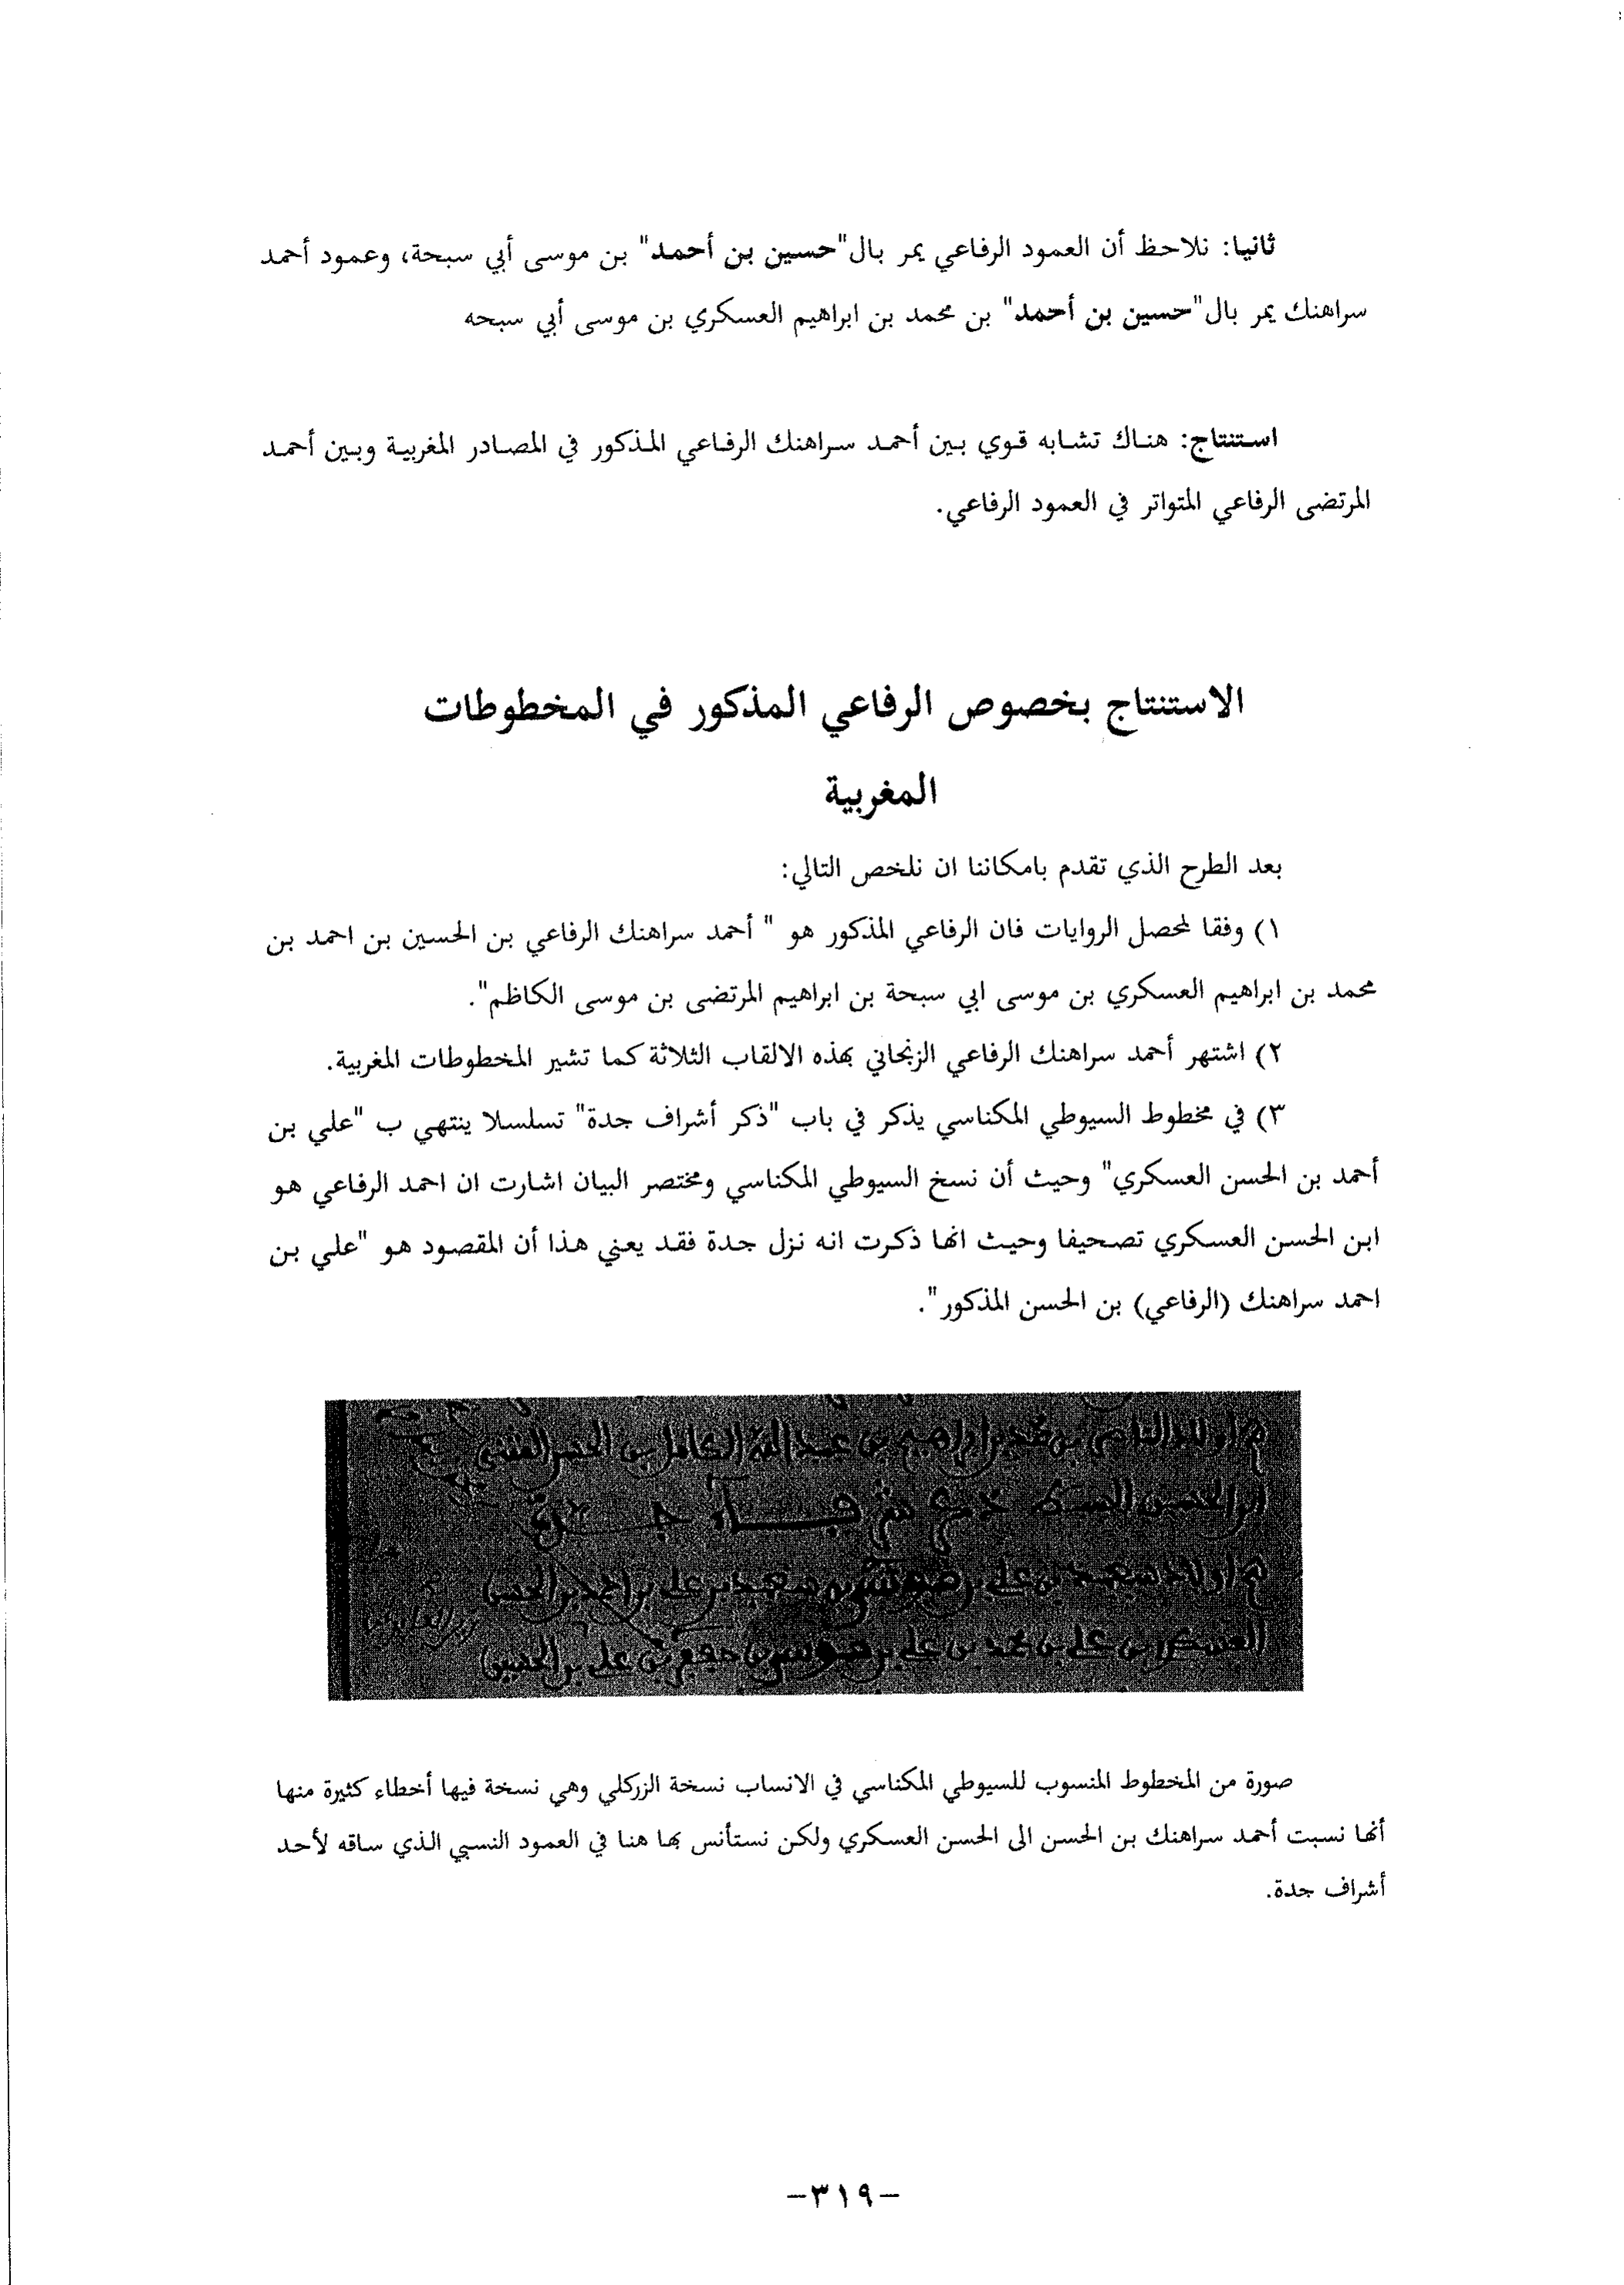 ثانيا: نلاحظ أن العمود الرفاعي يمر بال"حسين بن أحمد" بن موسى أبي سبحة، وعمود أحمد
سراهنك يمر بال"حسين بن أحمد" بن محمد بن ابراهيم العسكري بن موسى أبي سبحه
استنتاج: هناك تشابه قوي بين أحمد سراهنك الرفاعي المذكور في المصادر المغربية وبين أحمد
المرتضى الرفاعي المتواتر في العمود الرفاعي.
الاستنتاج بخصوص الرفاعي المذكور في المخطوطات
المغربية
بعد الطرح الذي تقدم بامكاننا ان نلخص التالي:
١) وفقا لمحصل الروايات فان الرفاعي المذكور هو " أحمد سراهنك الرفاعي بن الحسين بن احمد بن
محمد بن ابراهيم العسكري بن موسى ابي سبحة بن ابراهيم المرتضى بن موسى الكاظم".
٢) اشتهر أحمد سراهنك الرفاعي الزنجاني بهذه الالقاب الثلاثة كما تشير المخطوطات المغربية.
٣) في مخطوط السيوطي المكناسي يذكر في باب "ذكر أشراف جدة" تسلسلا ينتهي ب "علي بن
أحمد بن الحسن العسكري" وحيث أن نسخ السيوطي المكناسي ومختصر البيان اشارت ان احمد الرفاعي هو
ابن الحسن العسكري تصحيفا وحيث انها ذكرت انه نزل جدة فقد يعني هذا أن المقصود هو "علي بن
احمد سراهنك (الرفاعي) بن الحسن المذكور".
بن محمد بن ابراهيم بن عبد الله الكامل بن الحسن المثنى
بن علي بن محمد بن علي بن موسى بن جعفر بن علي بن الحسين
صورة من المخطوط المنسوب للسيوطي المكناسي في الانساب نسخة الزركلي وهي نسخة فيها أخطاء كثيرة منها
أنها نسبت أحمد سراهنك بن الحسن الى الحسن العسكري ولكن نستأنس بها هنا في العمود النسبي الذي ساقه لأحد
أشراف جدة.
-٣١٩-